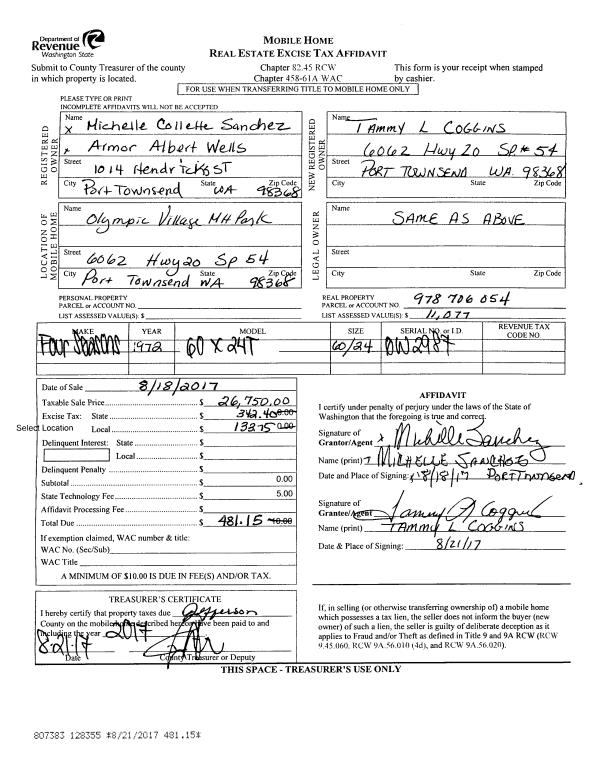 Department of
Revenue
Washington State
MOBILE HOME
REAL ESTATE EXCISE TAX AFFIDAVIT
Submit to County Treasurer of the county
in which property is located.
Chapter 82.45 RCW
Chapter 458-61A WAC
This form is your receipt when stamped
by cashier.
FOR USE WHEN TRANSFERRING TITLE TO MOBILE HOME ONLY
PLEASE TYPE OR PRINT
INCOMPLETE AFFIDAVITS WILL NOT BE ACCEPTED
REGISTERED
OWNER
Name
x Michelle Collette Sanchez
x Armor Albert Wells
Street
1014 Hendricks ST
City State Zip Code
Port Townsend WA 98368
NEW REGISTERED
OWNER
Name
TAMMY L COGGINS
6062 Hwy 20 SP# 54
Street
PORT TOWNSEND WA. 98368
City State Zip Code
LOCATION OF
MOBILE HOME
Name
Olympic Village MH Park
Street
6062 Hwy 20 Sp 54
City State Zip Code
Port Townsend WA 98368
LEGAL OWNER
Name
SAME AS ABOVE
Street
City State Zip Code
PERSONAL PROPERTY
PARCEL or ACCOUNT NO.
LIST ASSESSED VALUE(S): $
REAL PROPERTY
PARCEL or ACCOUNT NO. 978 706 054
LIST ASSESSED VALUE(S): $ 11,077
MAKE YEAR MODEL SIZE SERIAL NO. or I.D. REVENUE TAX
CODE NO.
Four Seasons 1972 60 X 24T 60/24 DW2987
Date of Sale 8/18/2017
Taxable Sale Price $ 26,750.00
Excise Tax: State $ 342.40 0.00
Select Location Local $ 133.75 0.00
Delinquent Interest: State $
Local $
Delinquent Penalty $
Subtotal $ 0.00
State Technology Fee $ 5.00
Affidavit Processing Fee $
Total Due $ 481.15 10.00
If exemption claimed, WAC number & title:
WAC No. (Sec/Sub)
WAC Title
A MINIMUM OF $10.00 IS DUE IN FEE(S) AND/OR TAX.
AFFIDAVIT
I certify under penalty of perjury under the laws of the State of
Washington that the foregoing is true and correct.
Signature of
Grantor/Agent x Michelle Sanchez
Name (print) MICHELLE SANCHEZ
Date and Place of Signing: 8/18/17 PORT TOWNSEND
Signature of
Grantee/Agent Tammy Coggins
Name (print) TAMMY L COGGINS
Date & Place of Signing: 8/21/17
TREASURER'S CERTIFICATE
I hereby certify that property taxes due Jefferson
County on the mobile home described hereon have been paid to and
including the year 2017
8-21-17
Date County Treasurer or Deputy
If, in selling (or otherwise transferring ownership of) a mobile home
which possesses a tax lien, the seller does not inform the buyer (new
owner) of such a lien, the seller is guilty of deliberate deception as it
applies to Fraud and/or Theft as defined in Title 9 and 9A RCW (RCW
9.45.060, RCW 9A.56.010 (4d), and RCW 9A.56.020).
THIS SPACE - TREASURER'S USE ONLY
807383 128355 *8/21/2017 481.15*